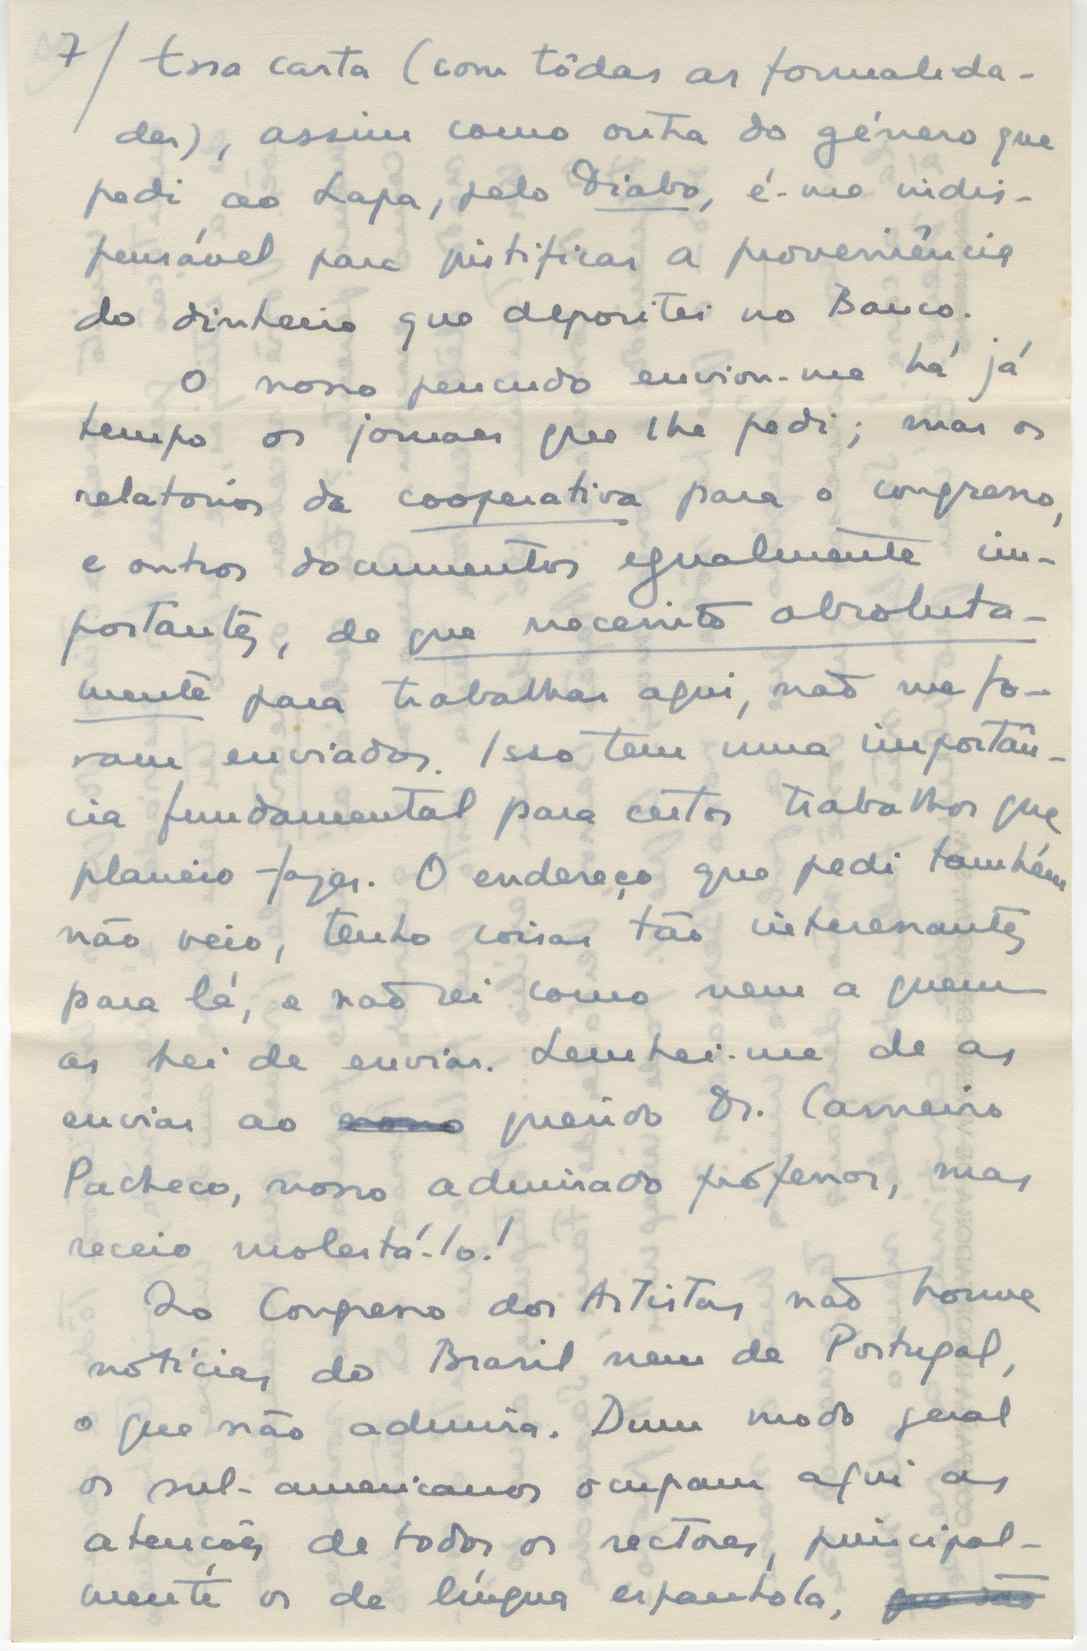 7/ Essa carta (com tôdas as formalida-
des), assim como outra do género que
pedi ao Lapa, pelo Diabo, é-me indis-
pensável para justificar a proveniência
do dinheiro que depositei no Banco.
O nosso pencudo enviou-me há já
tempo os jornaes que lhe pedi; mas os
relatorios da cooperativa para o congresso,
e outros documentos egualmente im-
portantes, de que necessito absoluta-
mente para trabalhar aqui, não me fo-
ram enviados. Isso tem uma importân-
cia fundamental para certos trabalhos que
planeio fazer. O endereço que pedi também
não veio, tenho coisas tão interessantes
para lá, e não sei como nem a quem
as hei de enviar. Lembrei-me de as
enviar ao querido Dr. Carneiro
Pacheco, nosso admirado professor, mas
receio molestá-lo!
No Congresso dos Artistas não houve
notícias do Brasil nem de Portugal,
o que não admira. Dum modo geral
os sul-americanos ocupam aqui as
atenções de todos os sectores, principal-
mente os de língua espanhola,